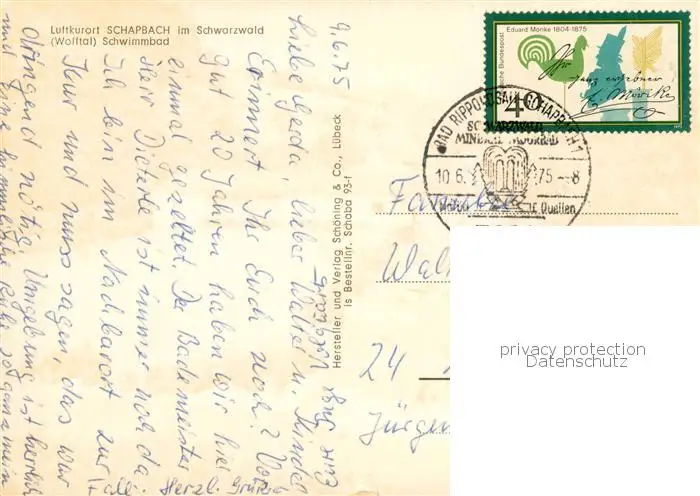 Luftkurort SCHAPBACH im Schwarzwald
(Wolftal) Schwimmbad
9.6.75
Liebe Gerda, lieber Walter u. Kinder
Erinnert Ihr Euch noch? Vor
gut 20 Jahren haben wir hier
einmal gezeltet. Der Bademeister
Herr Dieterle ist immer noch da
Ich bin im Nachbarort zur
Kur und muss sagen, das war
dringend nötig. Umgebung ist herrlich
und eine himmlische Ruhe so ganz mein
Fall. Herzl. Grüße
Eure
Hersteller und Verlag Schöning & Co., Lübeck
is Bestellnr. Schaba 93-f
Eduard Mörike 1804-1875
Deutsche Bundespost
40
ganz ergebner
E. Mörike
BAD RIPPOLDSAU-SCHAPBACH 1
SCHWARZWALD
MINERAL MOORBAD
10.6. 75-8
Quellen
Familie
Wal
24
Jürgen
privacy protection
Datenschutz